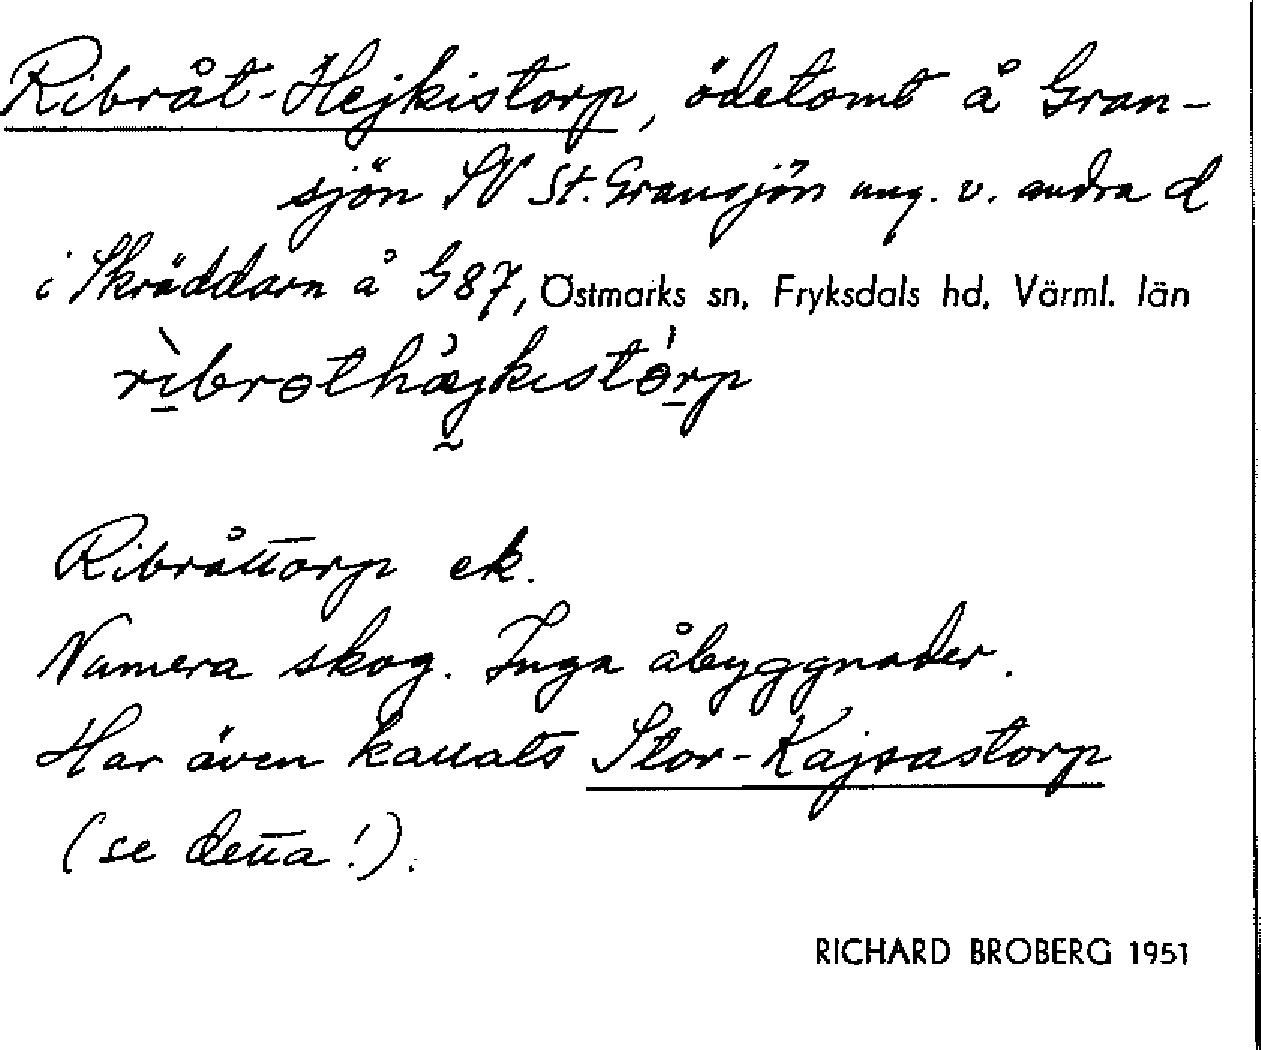 Ribråt-Hejkistorp, ödetomt å Gran-
sjön SV St. Gransjön ung. v. andra d
i Skräddarn å G87, Östmarks sn, Fryksdals hd, Värml. län
Ribråttorp ek.
Numera skog. Inga åbyggnader.
Har även kallats Stor-Kajsastorp
(se detta!).
RICHARD BROBERG 1951